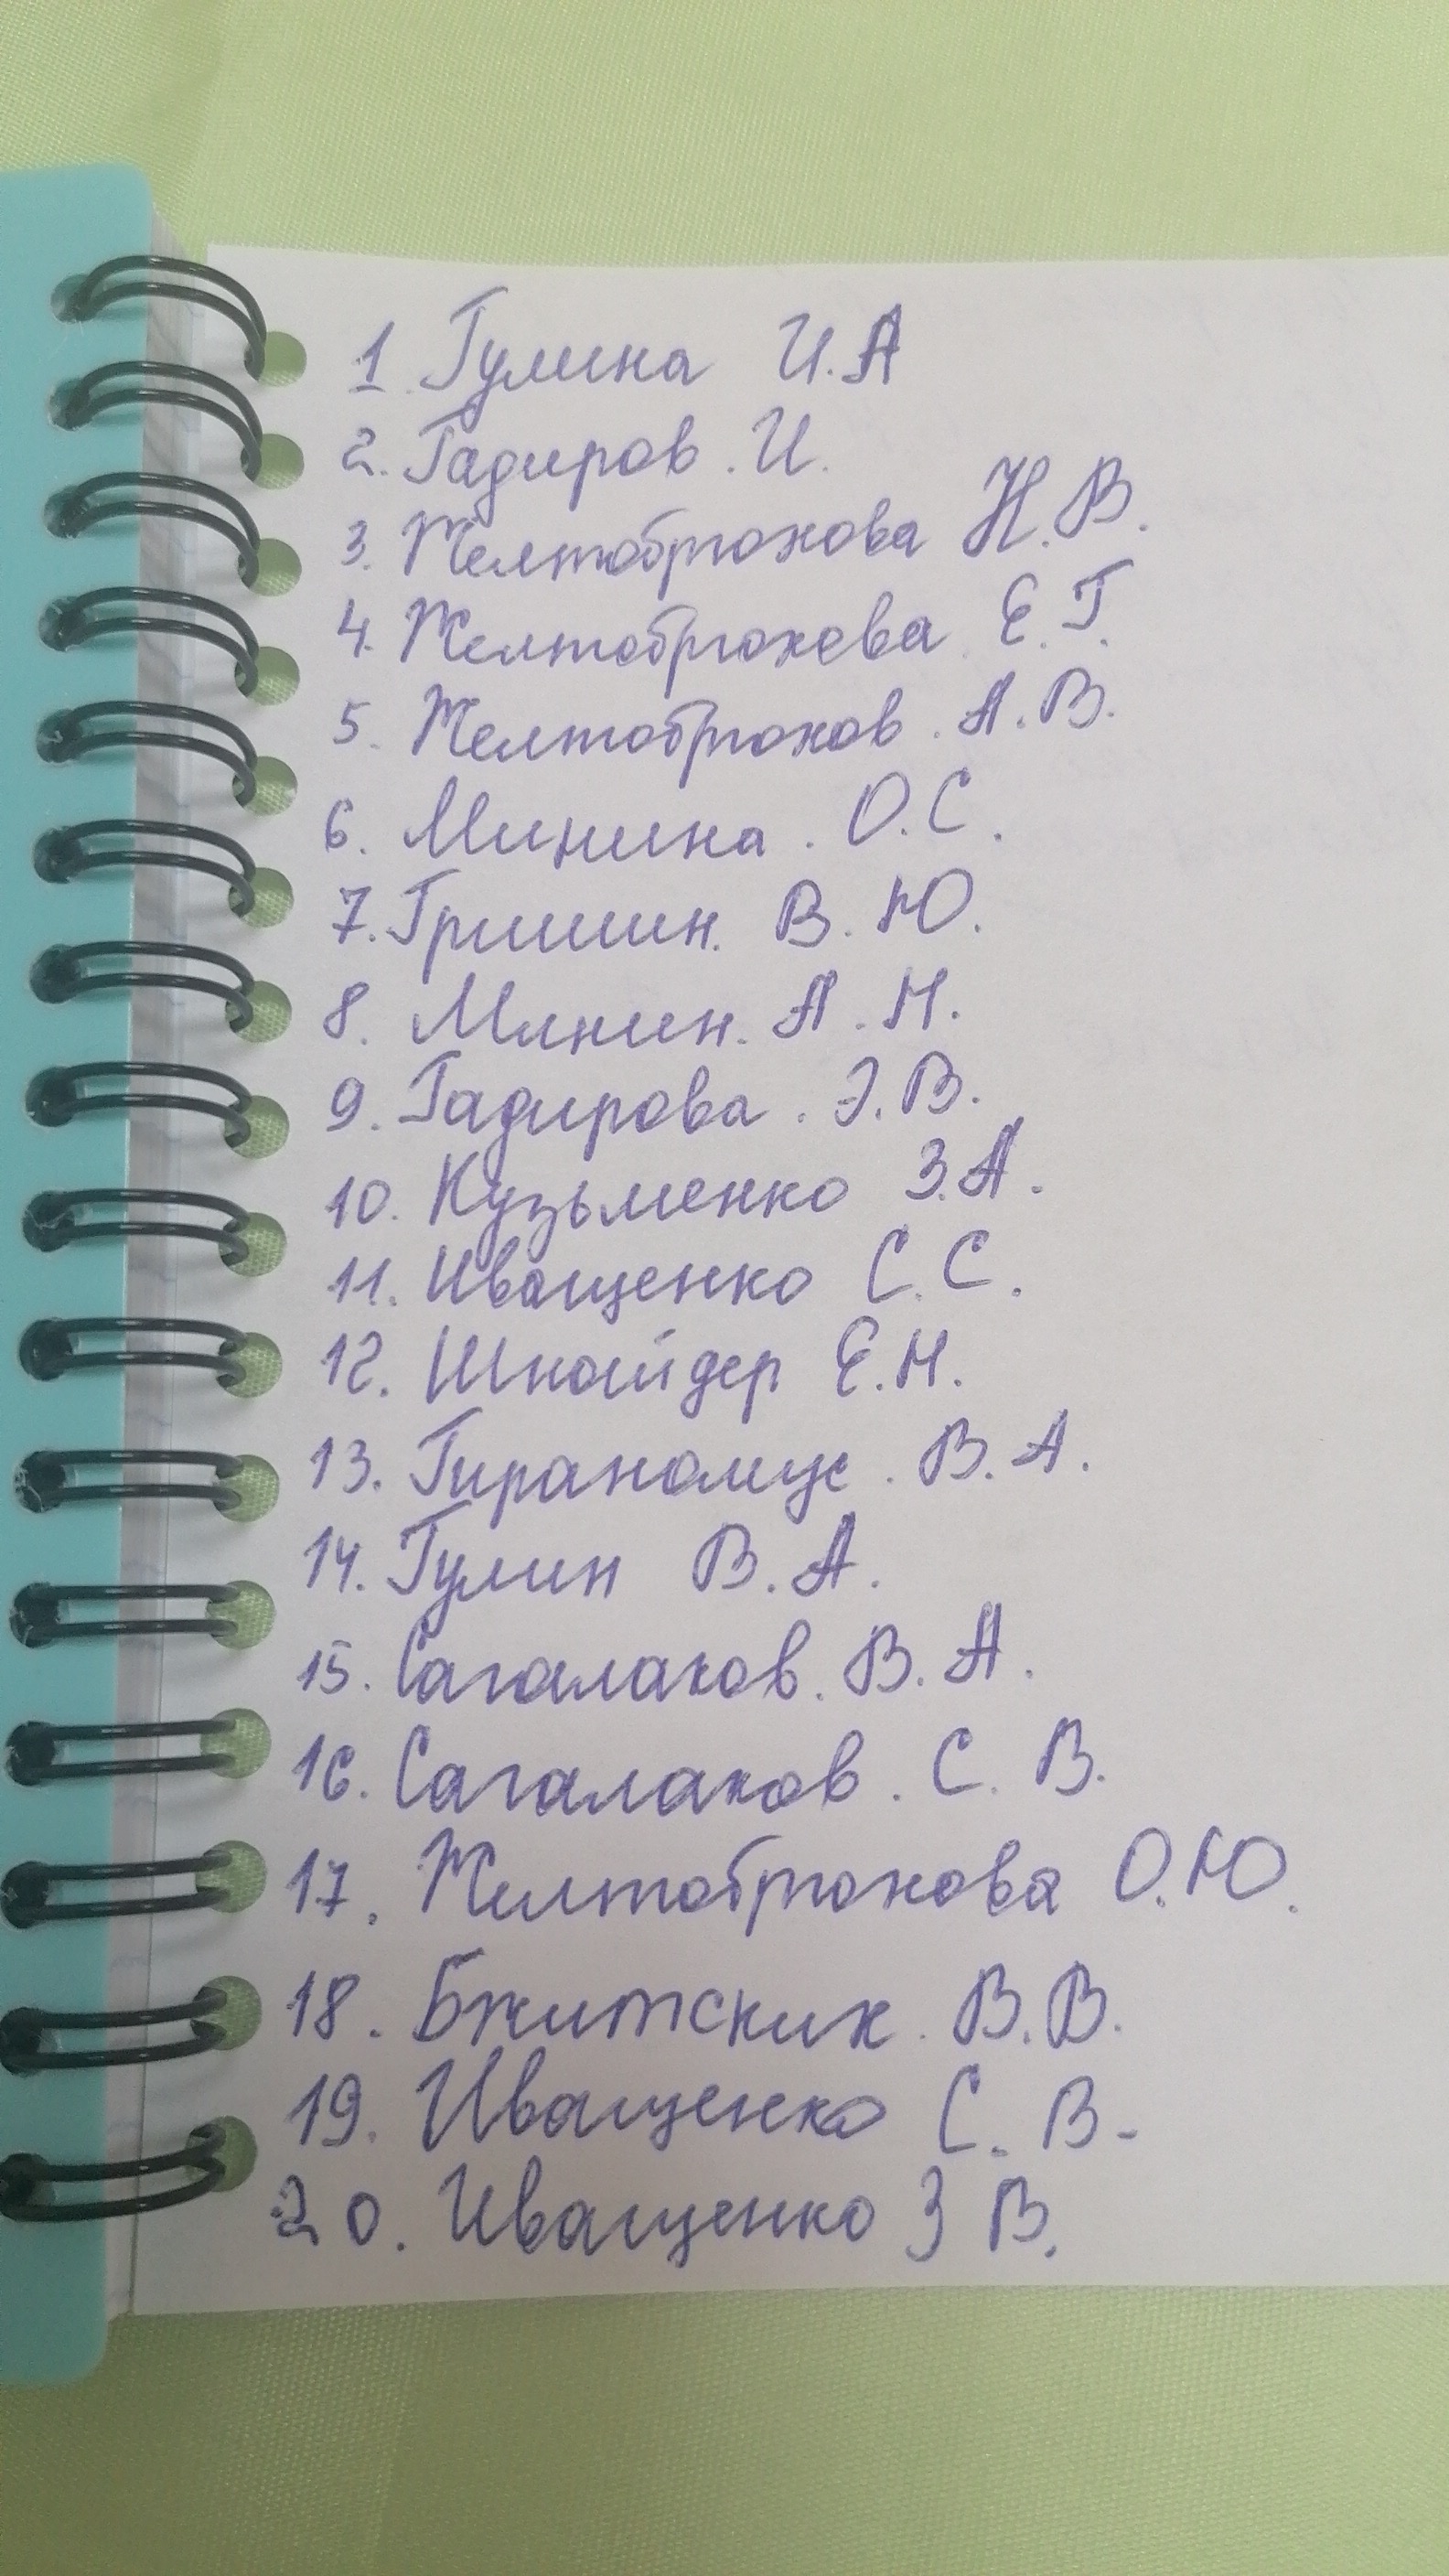 1. Гулина И.А
2. Гадиров. И.
3. Желтобрюхова Н.В.
4. Желтобрюхова Е.Г.
5. Желтобрюхов. А.В.
6. Минина. О.С.
7. Гришин. В.Ю.
8. Минин. А.Н.
9. Гадирова. Э.В.
10. Кузьменко З.А.
11. Иващенко С.С.
12. Шнайдер Е.Н.
13. В.А.
14. Гулин В.А.
15. Сагалаков. В.А.
16. Сагалаков. С.В.
17. Желтобрюхова О.Ю.
18. Бжитских. В.В.
19. Иващенко С.В.
20. Иващенко З В.